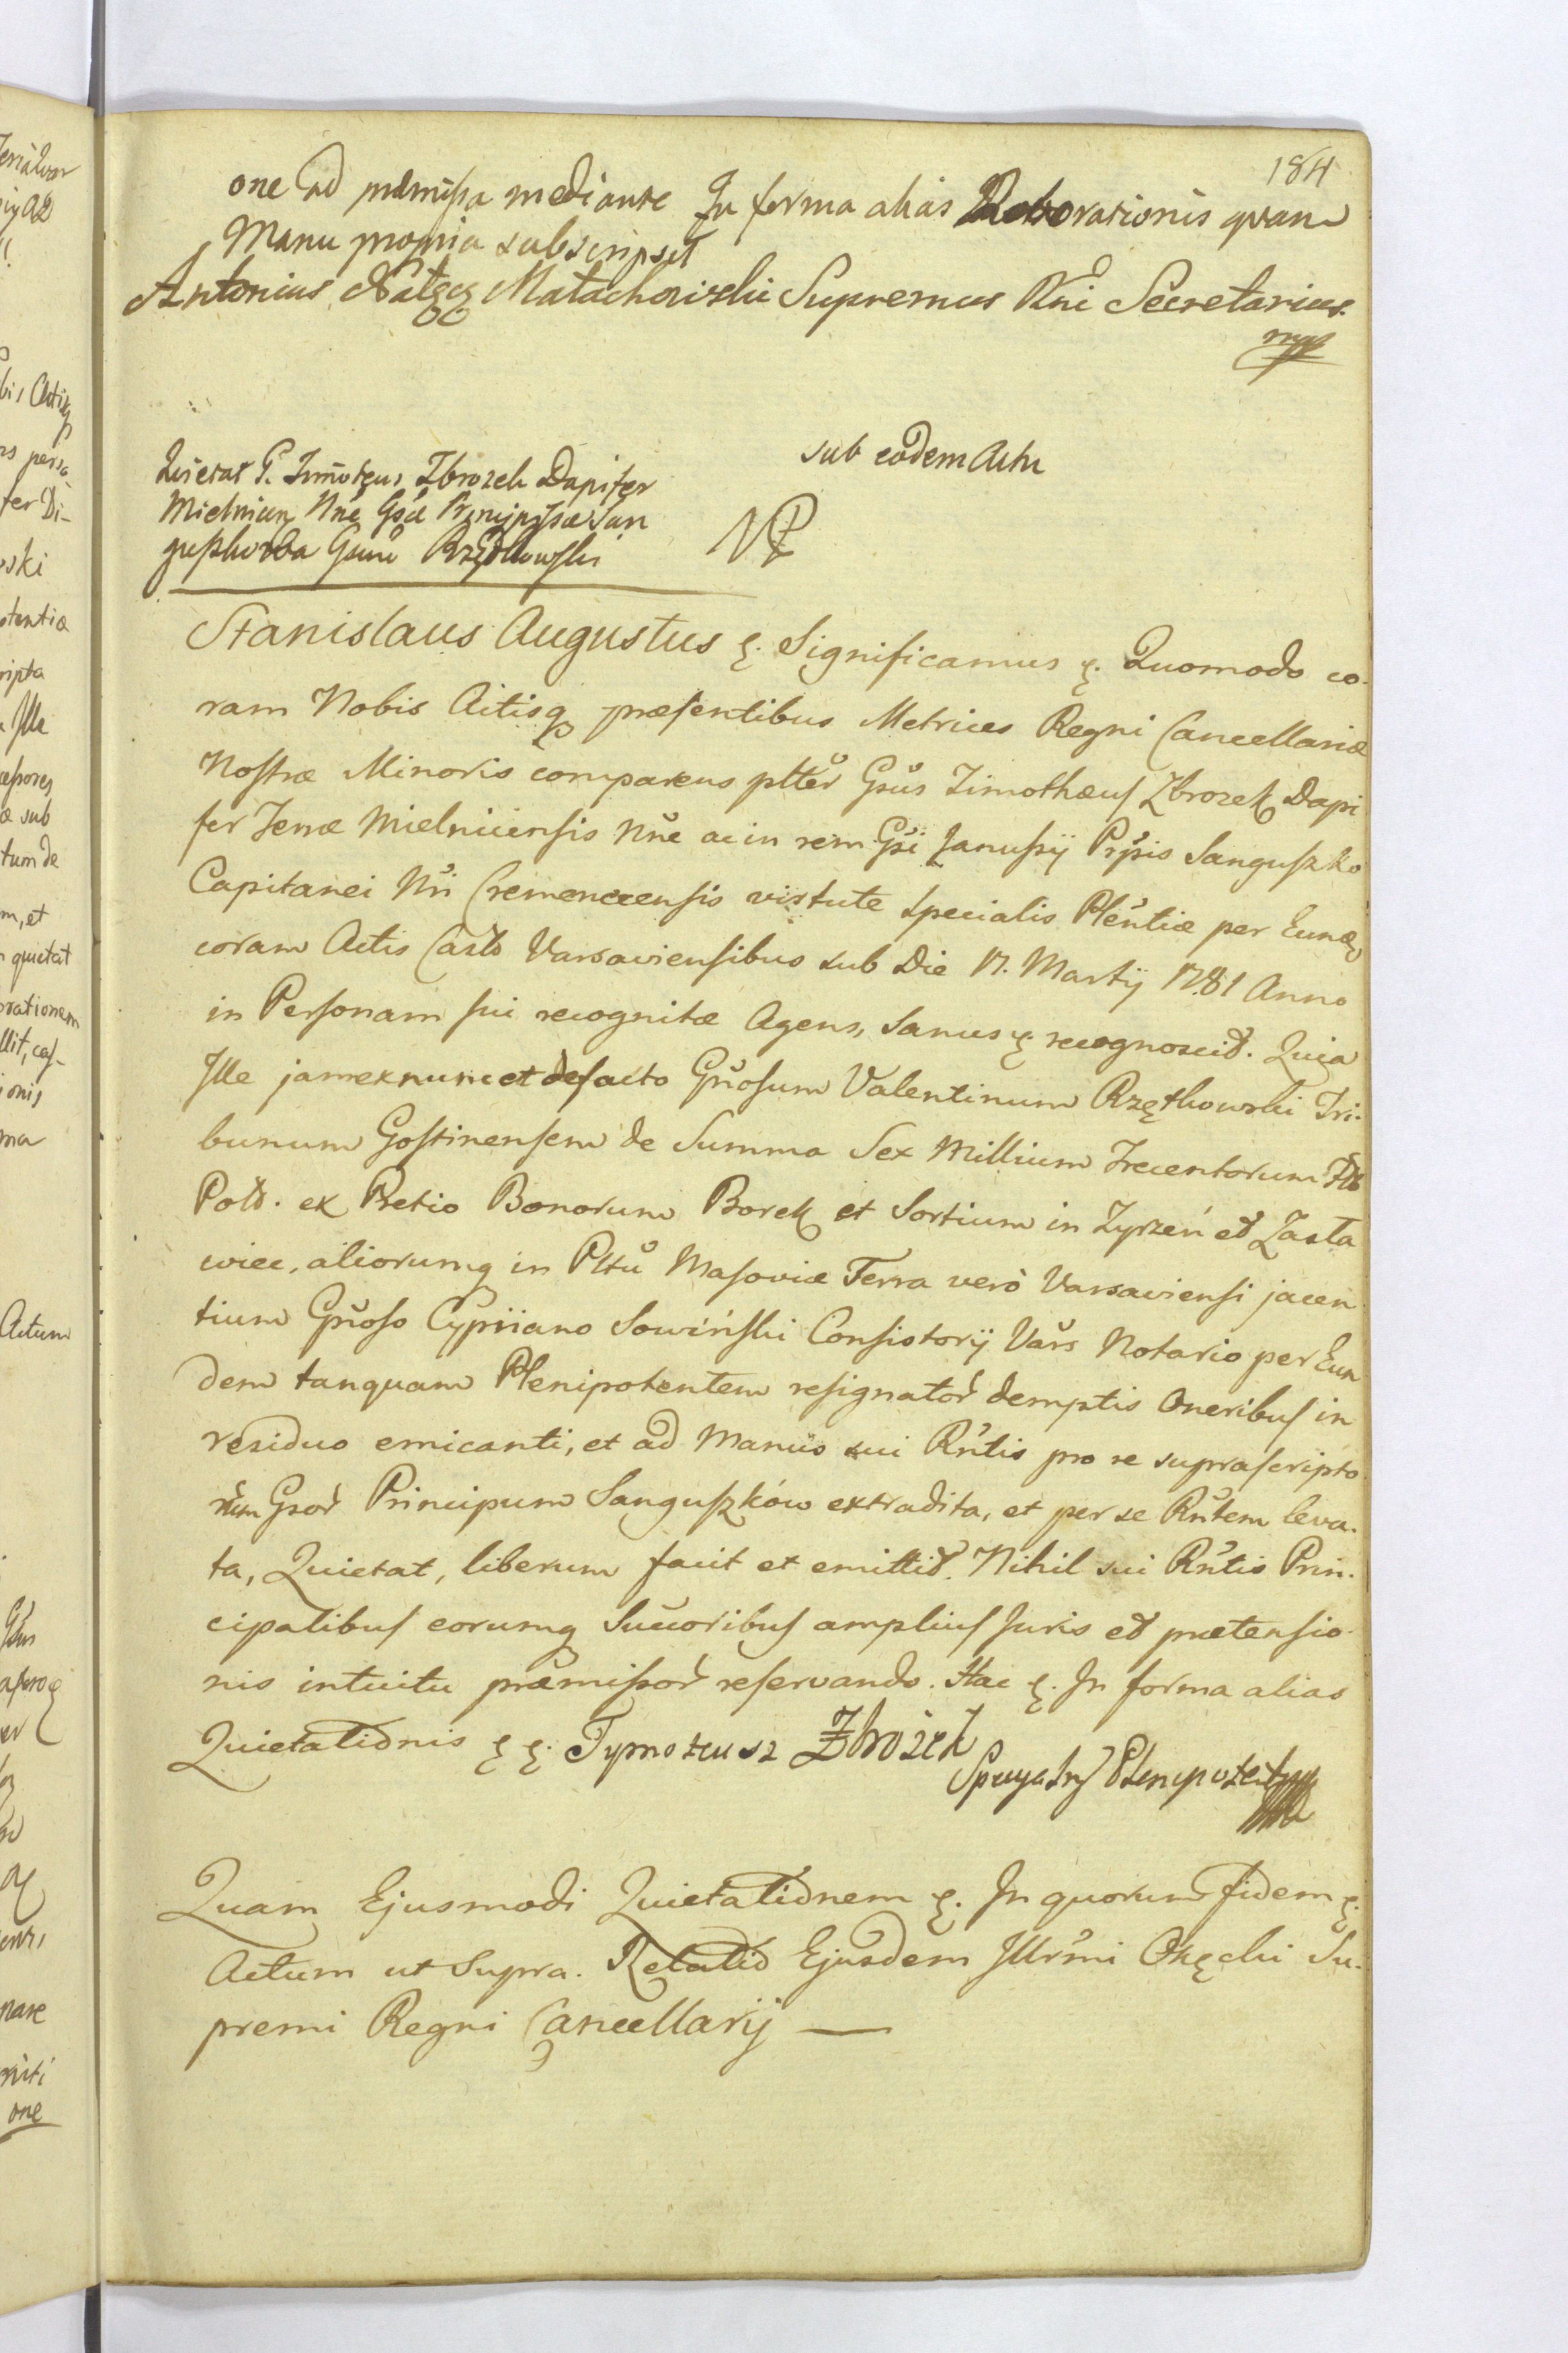 184
one ad præmissa mediante In forma alias Roborationis quam
Manu propria subscripsit
Antonius Nałęcz Małachowski Supremus Rni Secretarius.
mpp
sub eodem Actu
Quietat G. Timoteus Zbrozek Dapifer
Mielnicen Nne Gsæ Principissæ San
guszkowa Gsum Rzętkowski
NP
Stanislaus Augustus &. Significamus &. Quomodo co-
ram Nobis Actisq præsentibus Metrices Regni Cancellariæ
Nostræ Minoris comparens plttěr Gsus Timothæus Zbrozek Dapi
fer Terræ Mielnicensis Nne ac in rem Gsi Janussij Prpis Sanguszko
Capitanei Nri Cremenecensis virtute specialis Plentiæ per Eund
coram Actis Castr Varsaviensibus sub Die 17. Martij 1781 Anno
in Personam sui recognitæ Agens, Sanus & recognovit. Quia
Ille jam ex nunc et de facto Gnosum Valentinum Rzętkowski Tri-
bunum Gostinensem de Summa Sex Millium Trecentorum Flr
Pold. ex Pretio Bonorum Borek et Sortium in Zyrzeń et Zasta
wiec, aliorumq in Pttu Masoviæ Terra verò Varsaviensi jacen
tium Gnoso Cypriano Sowiński Consistorij Vars Notario per Eun
dem tanquam Plenipotentem resignator demptis Oneribus in
residuo emicanti, et ad Manus sui Rntis pro re suprascripto
rum Gsor Principum Sanguszków extradita, et per se Rntem leva-
ta, Quietat, liberum facit et emittit. Nihil sui Rntis Prin-
cipalibus eorumq Succoribus amplius Juris et prætensio-
nis intuitu præmissor reservando. Hac &. In forma alias
Quietationis & &. Tymoteusz Zbrożek
Specyalny Plenipotent mpp
Quam Ejusmodi Quietationem &. In quorum fidem &.
Actum ut Supra. Relatio Ejusdem Illrmi Okęcki Su-
premi Regni Cancellarij —